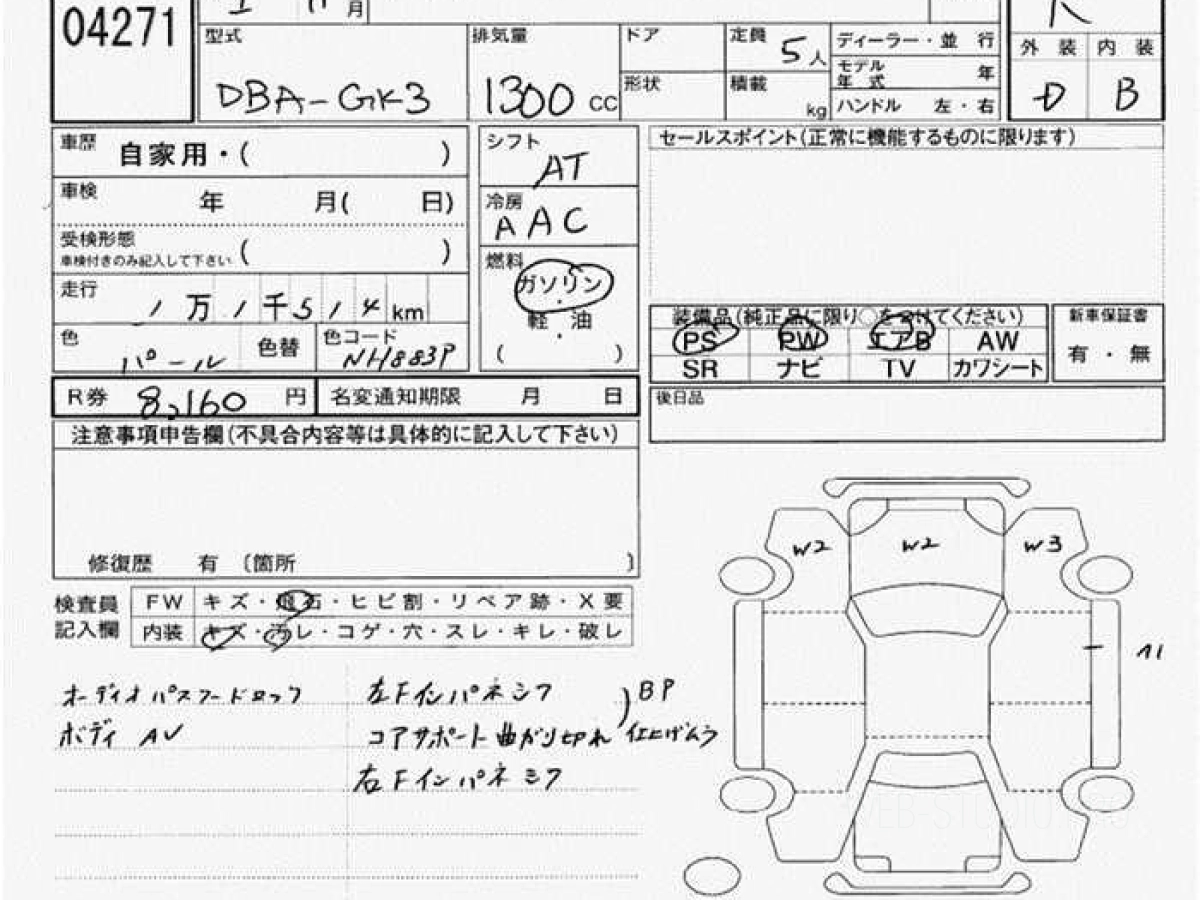 04271
月
型式 DBA-GK3
排気量 1300 cc
ドア
形状
定員 5人
積載 kg
ディーラー・並 行
モデル年式 年
ハンドル 左・右
外 装 内 装
D B
車歴 自家用・( )
車検 年 月( 日)
受検形態 ( )
車検付きのみ記入して下さい
走行 1万1千514km
色 パール 色替 色コード NH883P
シフト AT
冷房 AAC
燃料 ガソリン
軽・油
( )
セールスポイント(正常に機能するものに限ります)
装備品(純正品に限り○をつけてください)
PS PW エアB AW
SR ナビ TV カワシート
新車保証書
有・無
R券 8,160 円 名変通知期限 月 日
後日品
注意事項申告欄(不具合内容等は具体的に記入して下さい)
修復歴 有 〔箇所 〕
検査員記入欄
FW キズ・飛石・ヒビ割・リペア跡・X要
内装 キズ・汚レ・コゲ・穴・スレ・キレ・破レ
オーディオパスワードロック
ボディ AU
左Fインパネシワ
コアサポート曲がり切れ
右Fインパネシワ
BP
仕上げムラ
W2 W2 W3
A1